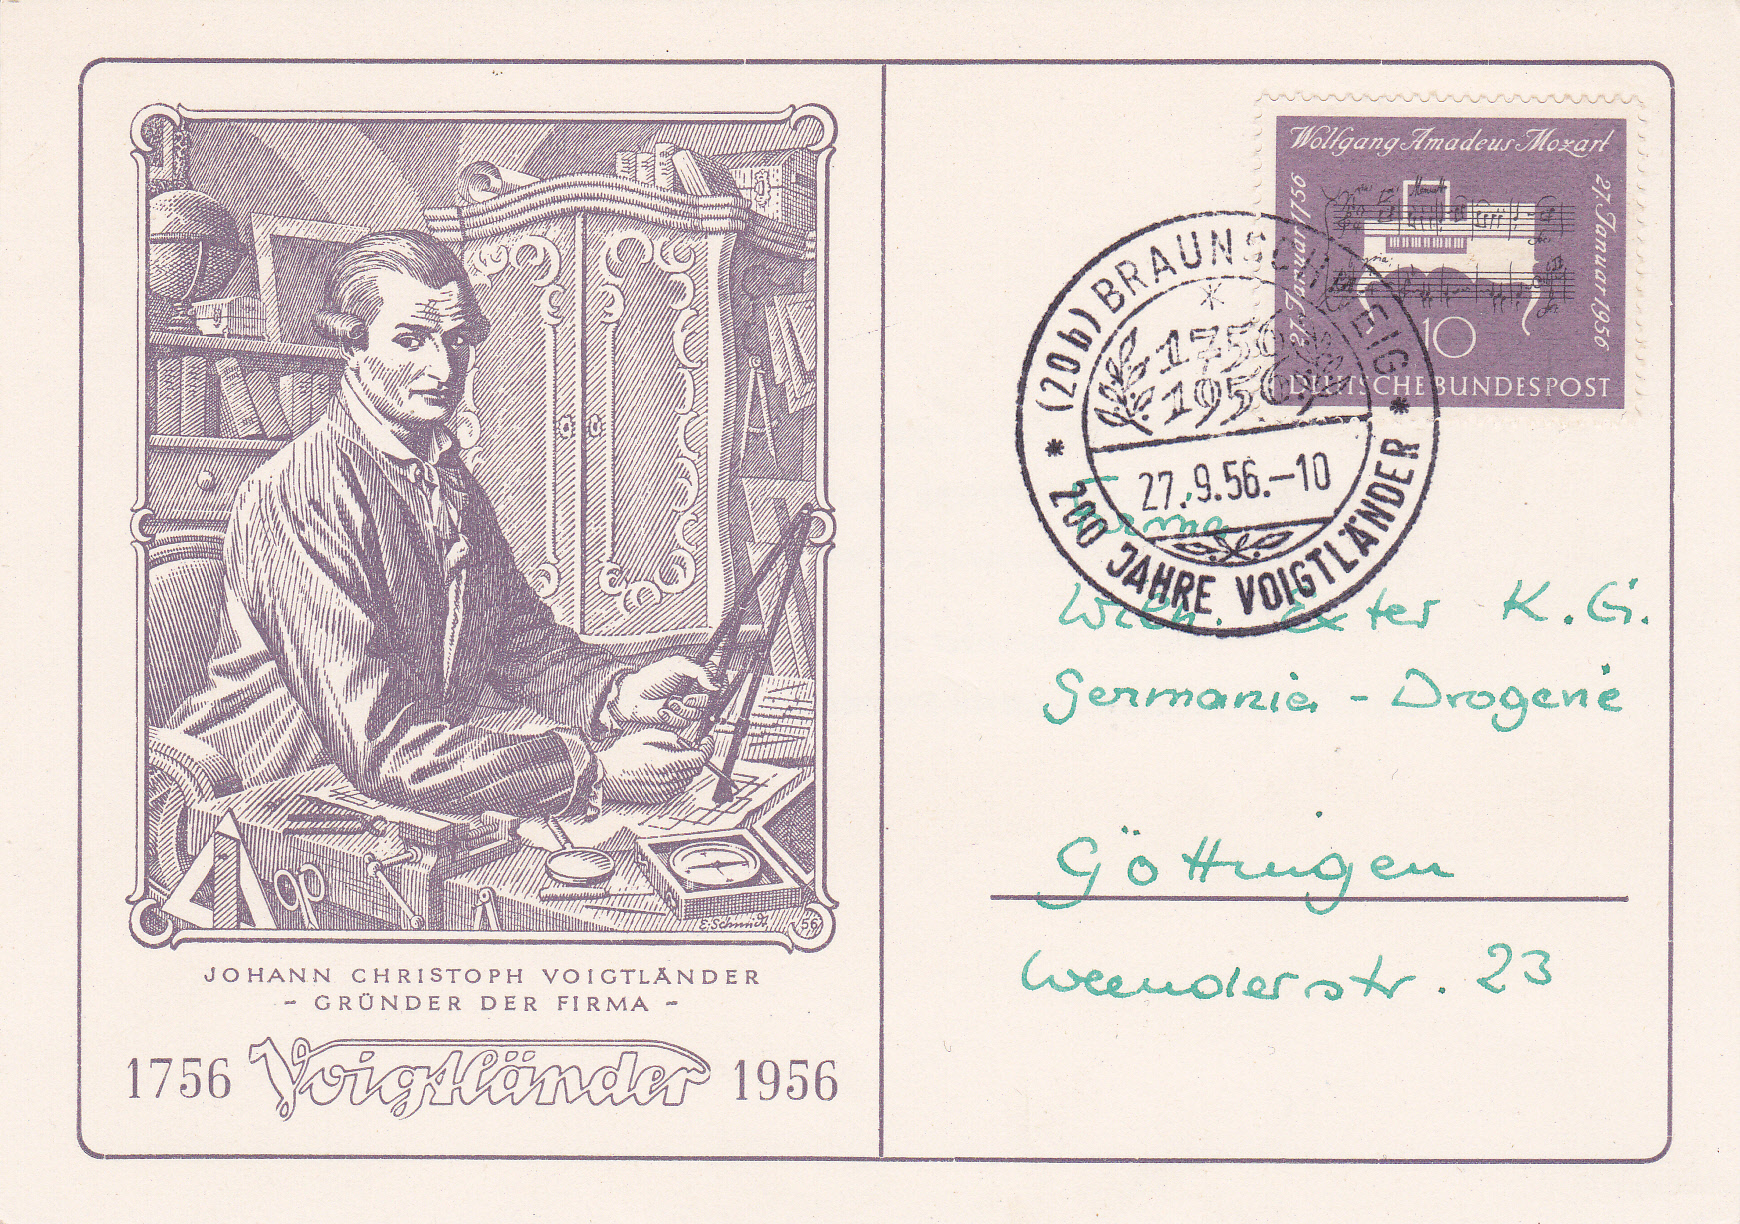 E. Schmidt 56
JOHANN CHRISTOPH VOIGTLÄNDER
- GRÜNDER DER FIRMA -
1756 Voigtländer 1956
Wolfgang Amadeus Mozart
27. Januar 1756
27. Januar 1956
10
DEUTSCHE BUNDESPOST
(20b) BRAUNSCHWEIG
1756
1956
27.9.56.-10
* 200 JAHRE VOIGTLÄNDER *
Firma
Wilh. Exter K.G.
Germania - Drogerie
Göttingen
Weenderstr. 23